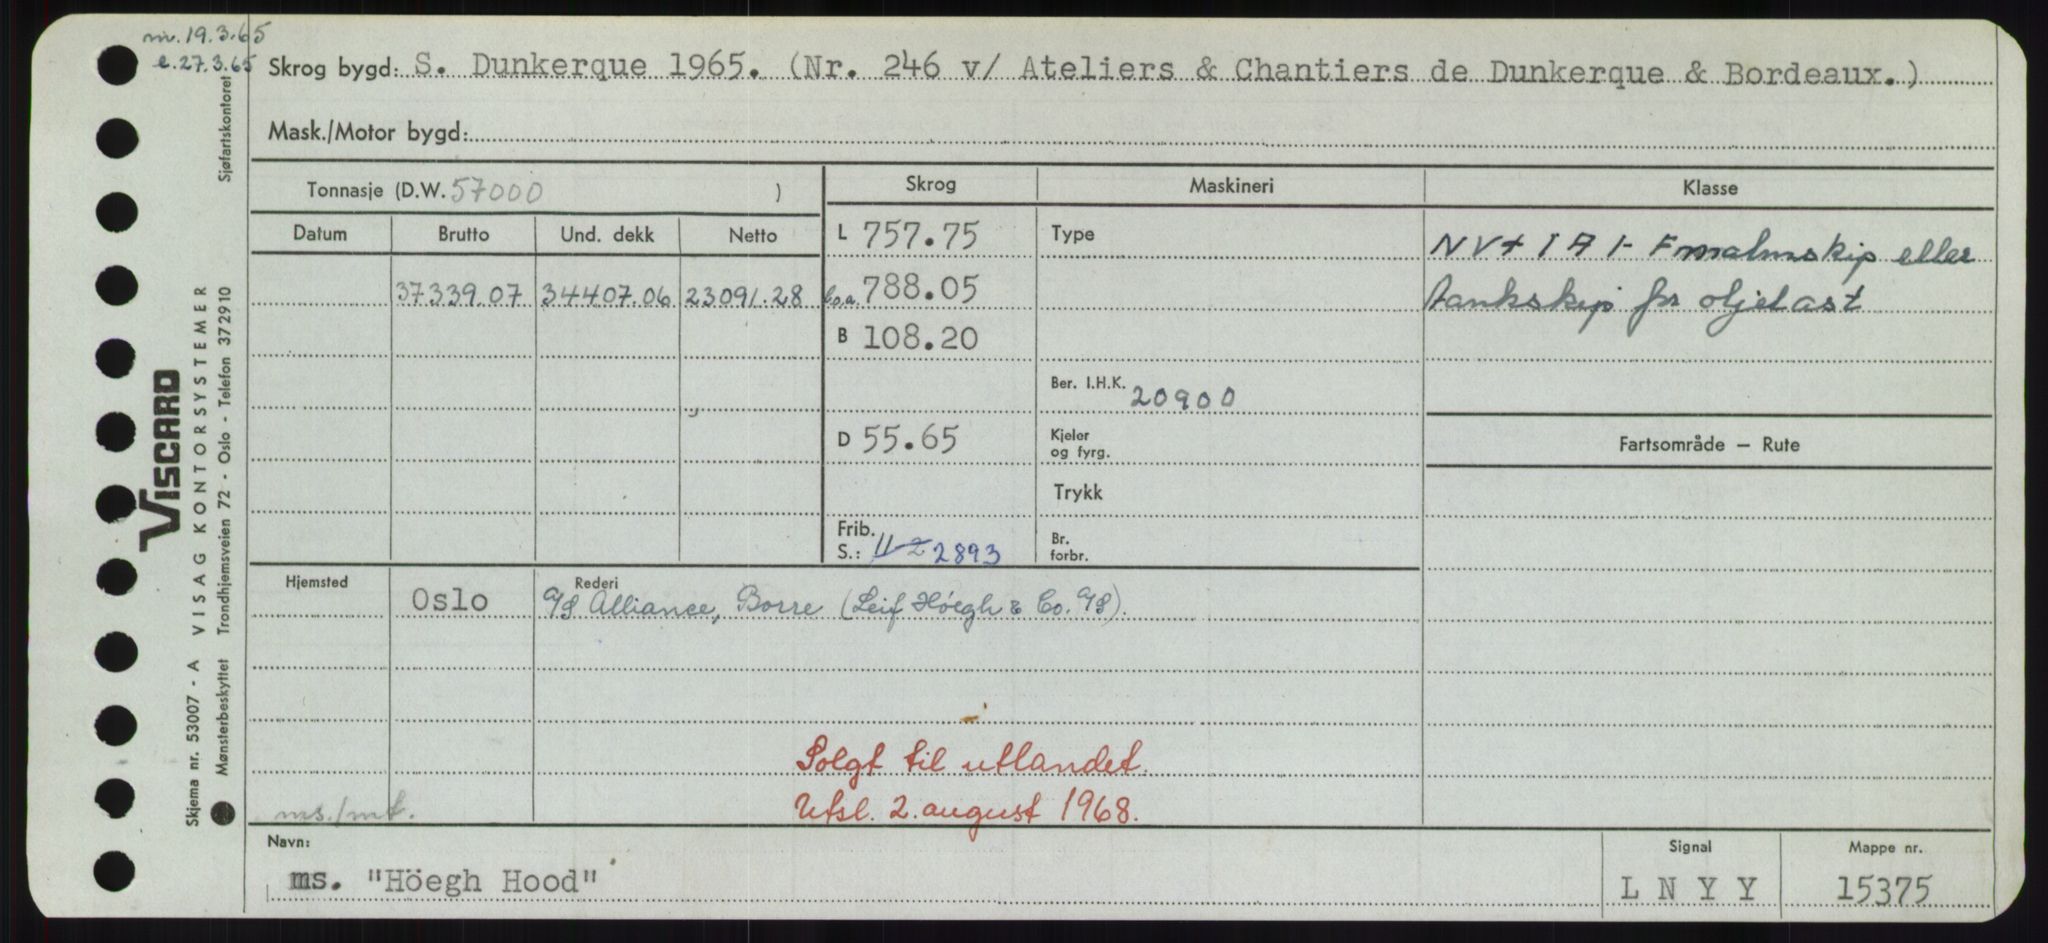 m. 19.3.65
e. 27.3.65
Skrog bygd: S. Dunkerque 1965. (Nr. 246 v/ Ateliers & Chantiers de Dunkerque & Bordeaux.)
Mask./Motor bygd:
Tonnasje (D.W. 57000 )
Skrog Maskineri Klasse
Datum Brutto Und. dekk Netto
L 757.75 Type
37339.07 34407.06 23091.28
l.o.a. 788.05
B 108.20
NV+ 1 A 1- F malmskip eller
tankskip for oljelast
Ber. I.H.K. 20900
D 55.65
Kjeler
og fyrg.
Fartsområde — Rute
Trykk
Frib.
S.: 2893
Br.
forbr.
Hjemsted Oslo
Rederi
A/S Alliance, Borre (Leif Höegh & Co. A/S).
Solgt til utlandet.
Utsl. 2. august 1968.
ms./mt.
Navn:
ms. "Höegh Hood"
Signal
L N Y Y
Mappe nr.
15375
VISCARD
VISAG KONTORSYSTEMER
Skjema nr. 53007 - A
Mønsterbeskyttet Trondhjemsveien 72 - Oslo - Telefon 37 29 10
Sjøfartskontoret